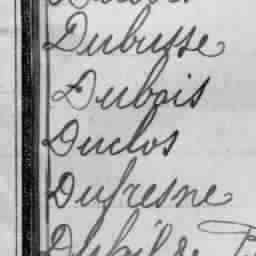 Dubusse
Dubois
Duclos
Dufresne